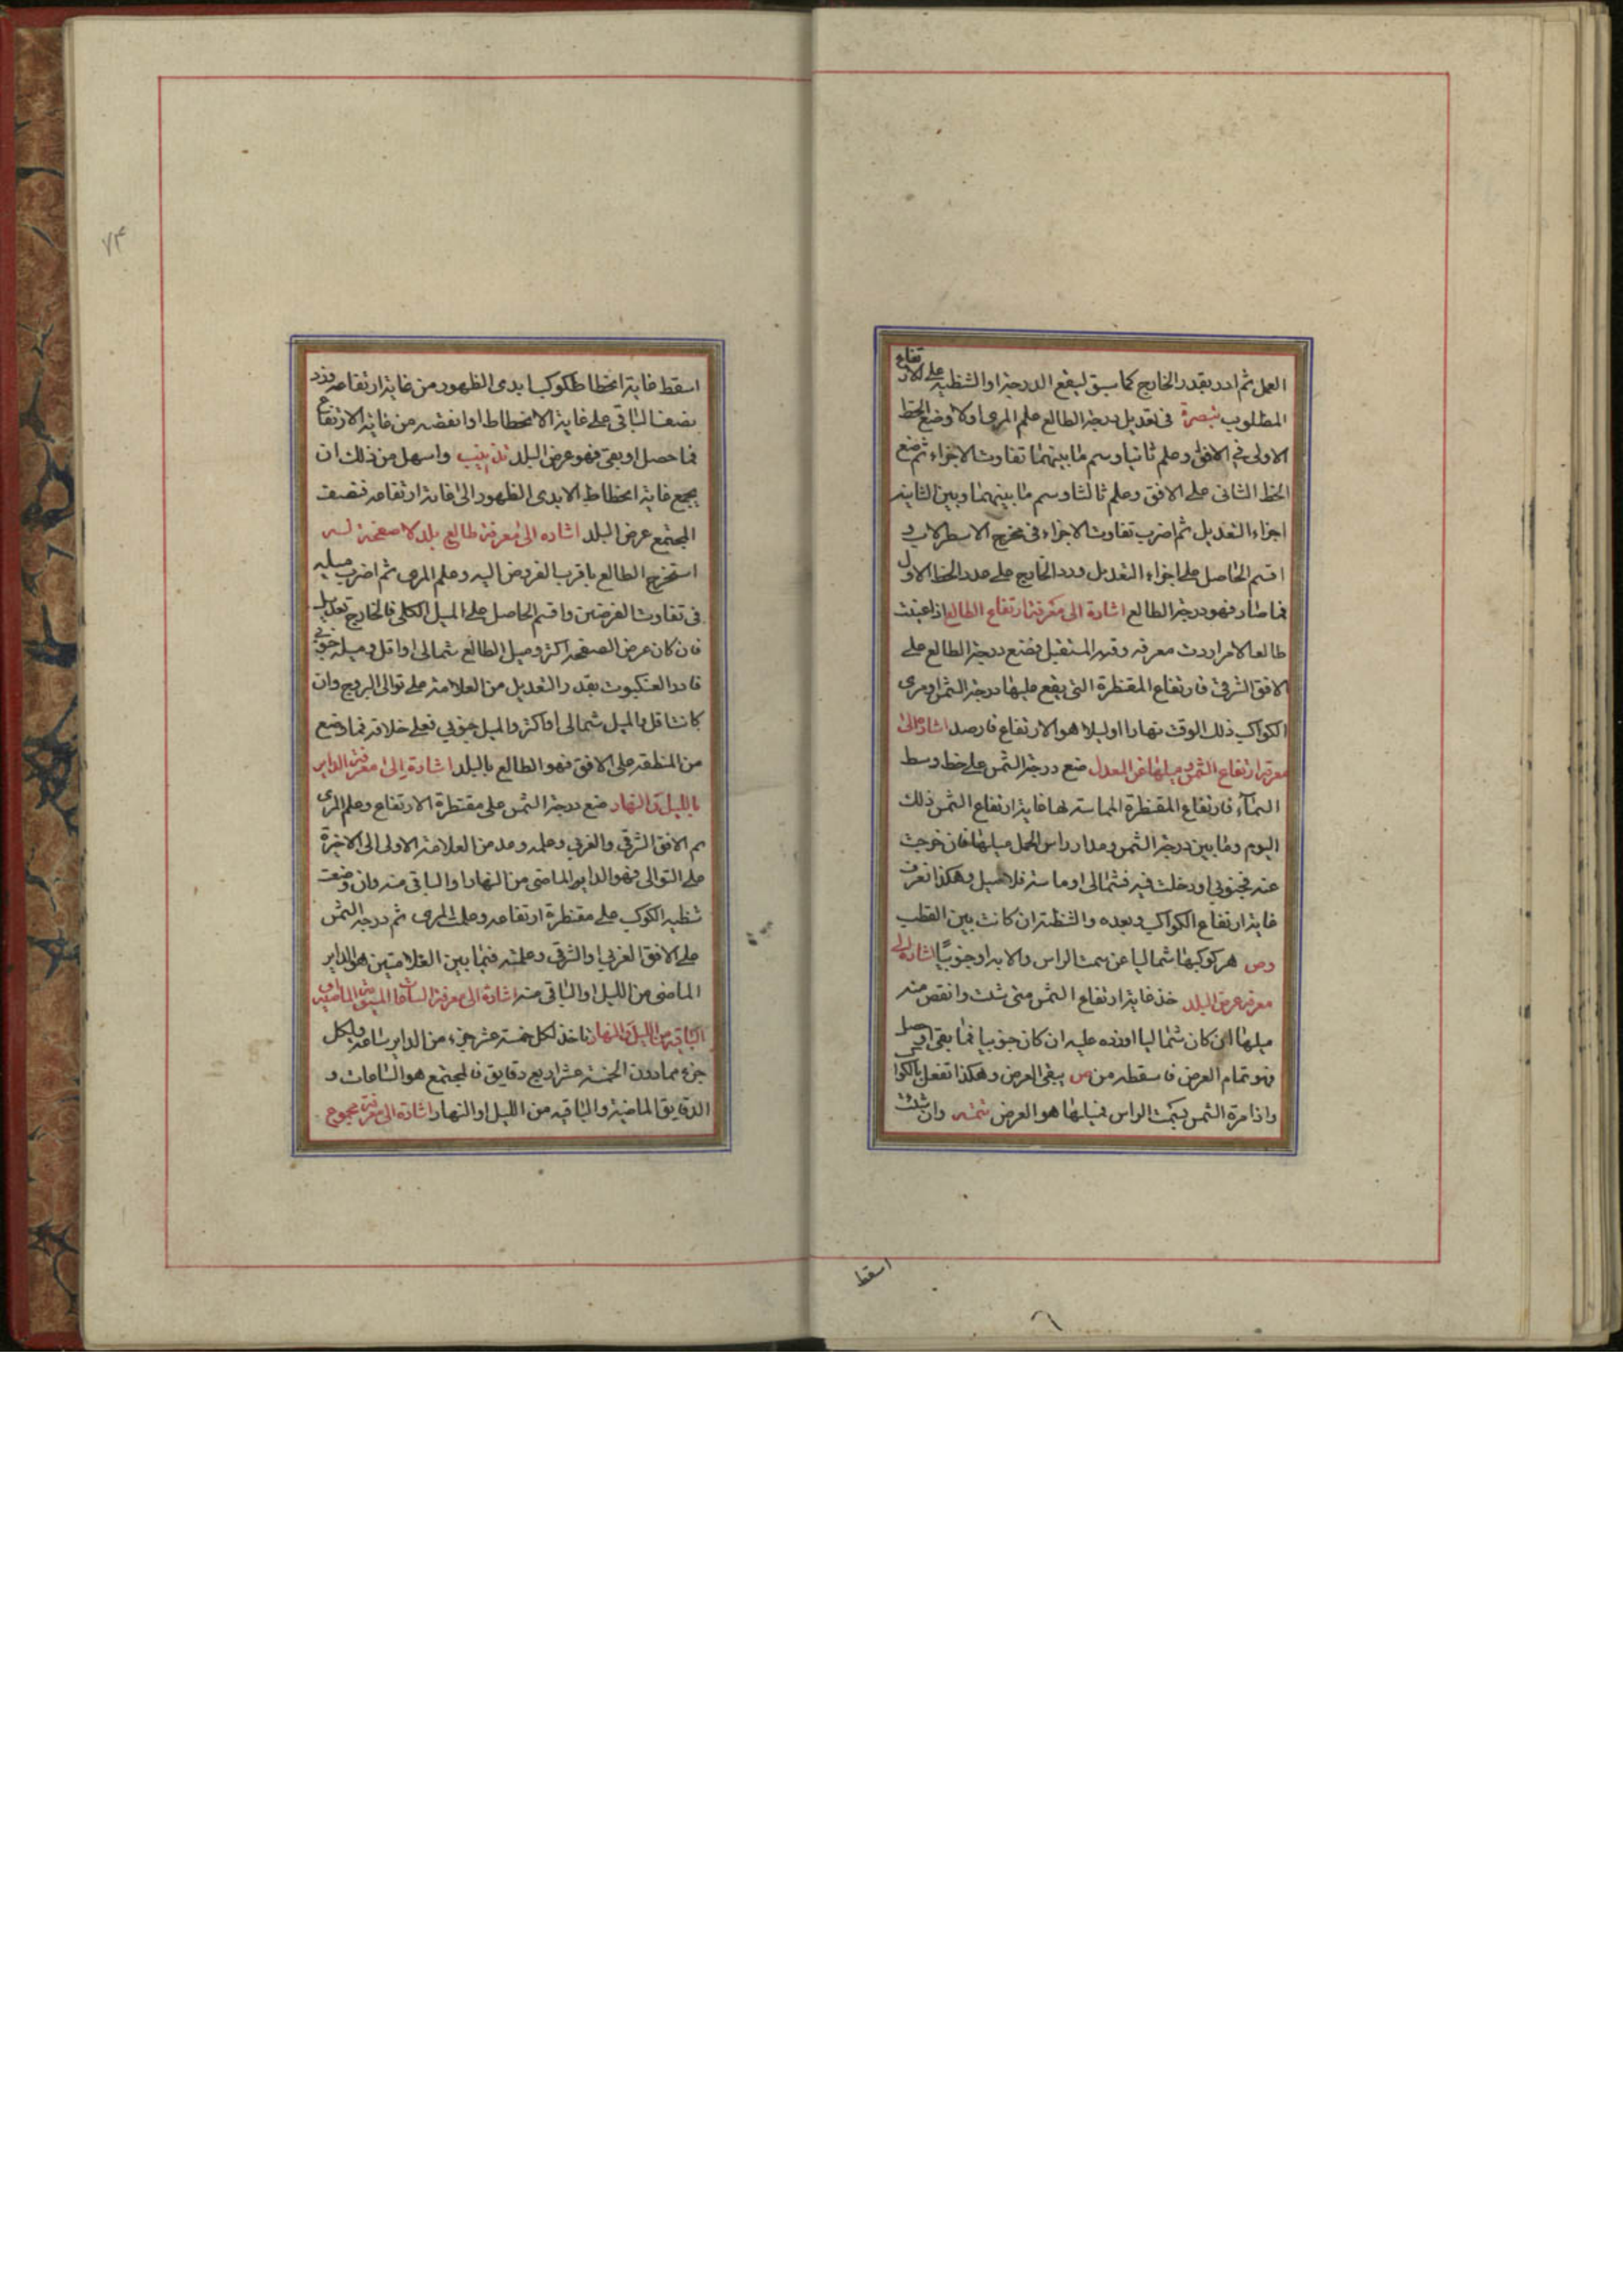 العمل ثم ادر بقدر الخارج كما سبق ليقع الدرجة او الشظية على الارتفاع
المطلوب تبصرة فى تعديل درجة الطالع علم المرى اولا وضع الخط
الاولى فى الافق وعلم ثانيا وسم ما بينهما تفاوت الاجزاء ثم ضع
الخط الثانى على الافق وعلم ثالثا وسم ما بينهما وبين الثانية
اجزاء التعديل ثم اضرب تفاوت الاجزاء فى مخرج الاسطرلاب و
اقسم الحاصل على اجزاء التعديل وزد الخارج على عدد الخط الاول
فما صار فهو درجة الطالع اشارة الى معرفة ارتفاع الطالع اذا عينت
طالعا لامر اردت معرفة وقته المستقبل فضع درجة الطالع على
الافق الشرقى فارتفاع المقنطرة التى يقع عليها درجة الشمس او مرى
الكواكب ذلك الوقت نهارا او ليلا هو الارتفاع فارصد اشارة الى
معرفة ارتفاع الشمس وميلها عن المعدل ضع درجة الشمس على خط وسط
السماء فارتفاع المقنطرة المماسة لها غاية ارتفاع الشمس ذلك
اليوم وما بين درجة الشمس ومدار راس الحمل ميلها فان خرجت
عنه فجنوبى او دخلت فيه فشمالى او ماسته فلا ميل وهكذا تعرف
غاية ارتفاع الكواكب وبعده والشظية ان كانت بين القطب
وص هر كوكبها شماليا عن سمت الراس والا يدا وجنوبيا اشارة الى
معرفة عرض البلد خذ غاية ارتفاع الشمس متى شئت وانقص منه
ميلها ان كان شماليا او زده عليه ان كان جنوبيا فما بقى او حصل
فهو تمام العرض فاسقطه من ص يبقى العرض وهكذا تفعل بالكواكب
واذا مرة الشمس بسمت الراس فميلها هو العرض تتمه وان شئت
اسقط
٧٤
اسقط غاية انحطاط كوكب ابدى الظهور من غاية ارتفاعه وزد
نصف الباقى على غاية الانحطاط او انقصه من غاية الارتفاع
فما حصل او بقى فهو عرض البلد تذنيب واسهل من ذلك ان
يجمع غاية انحطاط الابدى الظهور الى غاية ارتفاعه فنصف
المجتمع عرض البلد اشاره الى معرفة طالع بلد لا صفحة له
استخرج الطالع باقرب العروض اليه وعلم المرى ثم اضرب ميله
فى تفاوت العرضين واقسم الحاصل على الميل الكلى فالخارج تعديل
فان كان عرض الصفحه اكثر وميل الطالع شمالى او اقل وميله جنوبى
فادر العنكبوت بقدر التعديل من العلامة على توالى البروج وان
كانت اقل والميل شمالى او اكثر والميل جنوبى فعلى خلافه فما وقع
من المنطقة على الافق فهو الطالع بالبلد اشارة الى معرفة الداير
بالليل والنهار ضع درجة الشمس على مقنطرة الارتفاع وعلم المرى
ثم الافق الشرقى والغربى وعلمه وعد من العلامة الاولى الى الاخيرة
على التوالى فهو الداير الماضى من النهار او الباقى منه وان وضعت
شظية الكوكب على مقنطرة ارتفاعه وعلمت المرى ثم درجة الشمس
على الافق الغربى او الشرقى وعلمته فما بين العلامتين هو الداير
الماضى من الليل او الباقى منه اشارة الى معرفة الساعات المستوية الماضية و
الباقية من الليل والنهار تاخذ لكل خمسة عشر جزء من الداير ساعة ولكل
جزء مما دون الخمسة عشر اربع دقايق فالمجتمع هو الساعات و
الدقايق الماضية والباقية من الليل او النهار اشارة الى معرفة